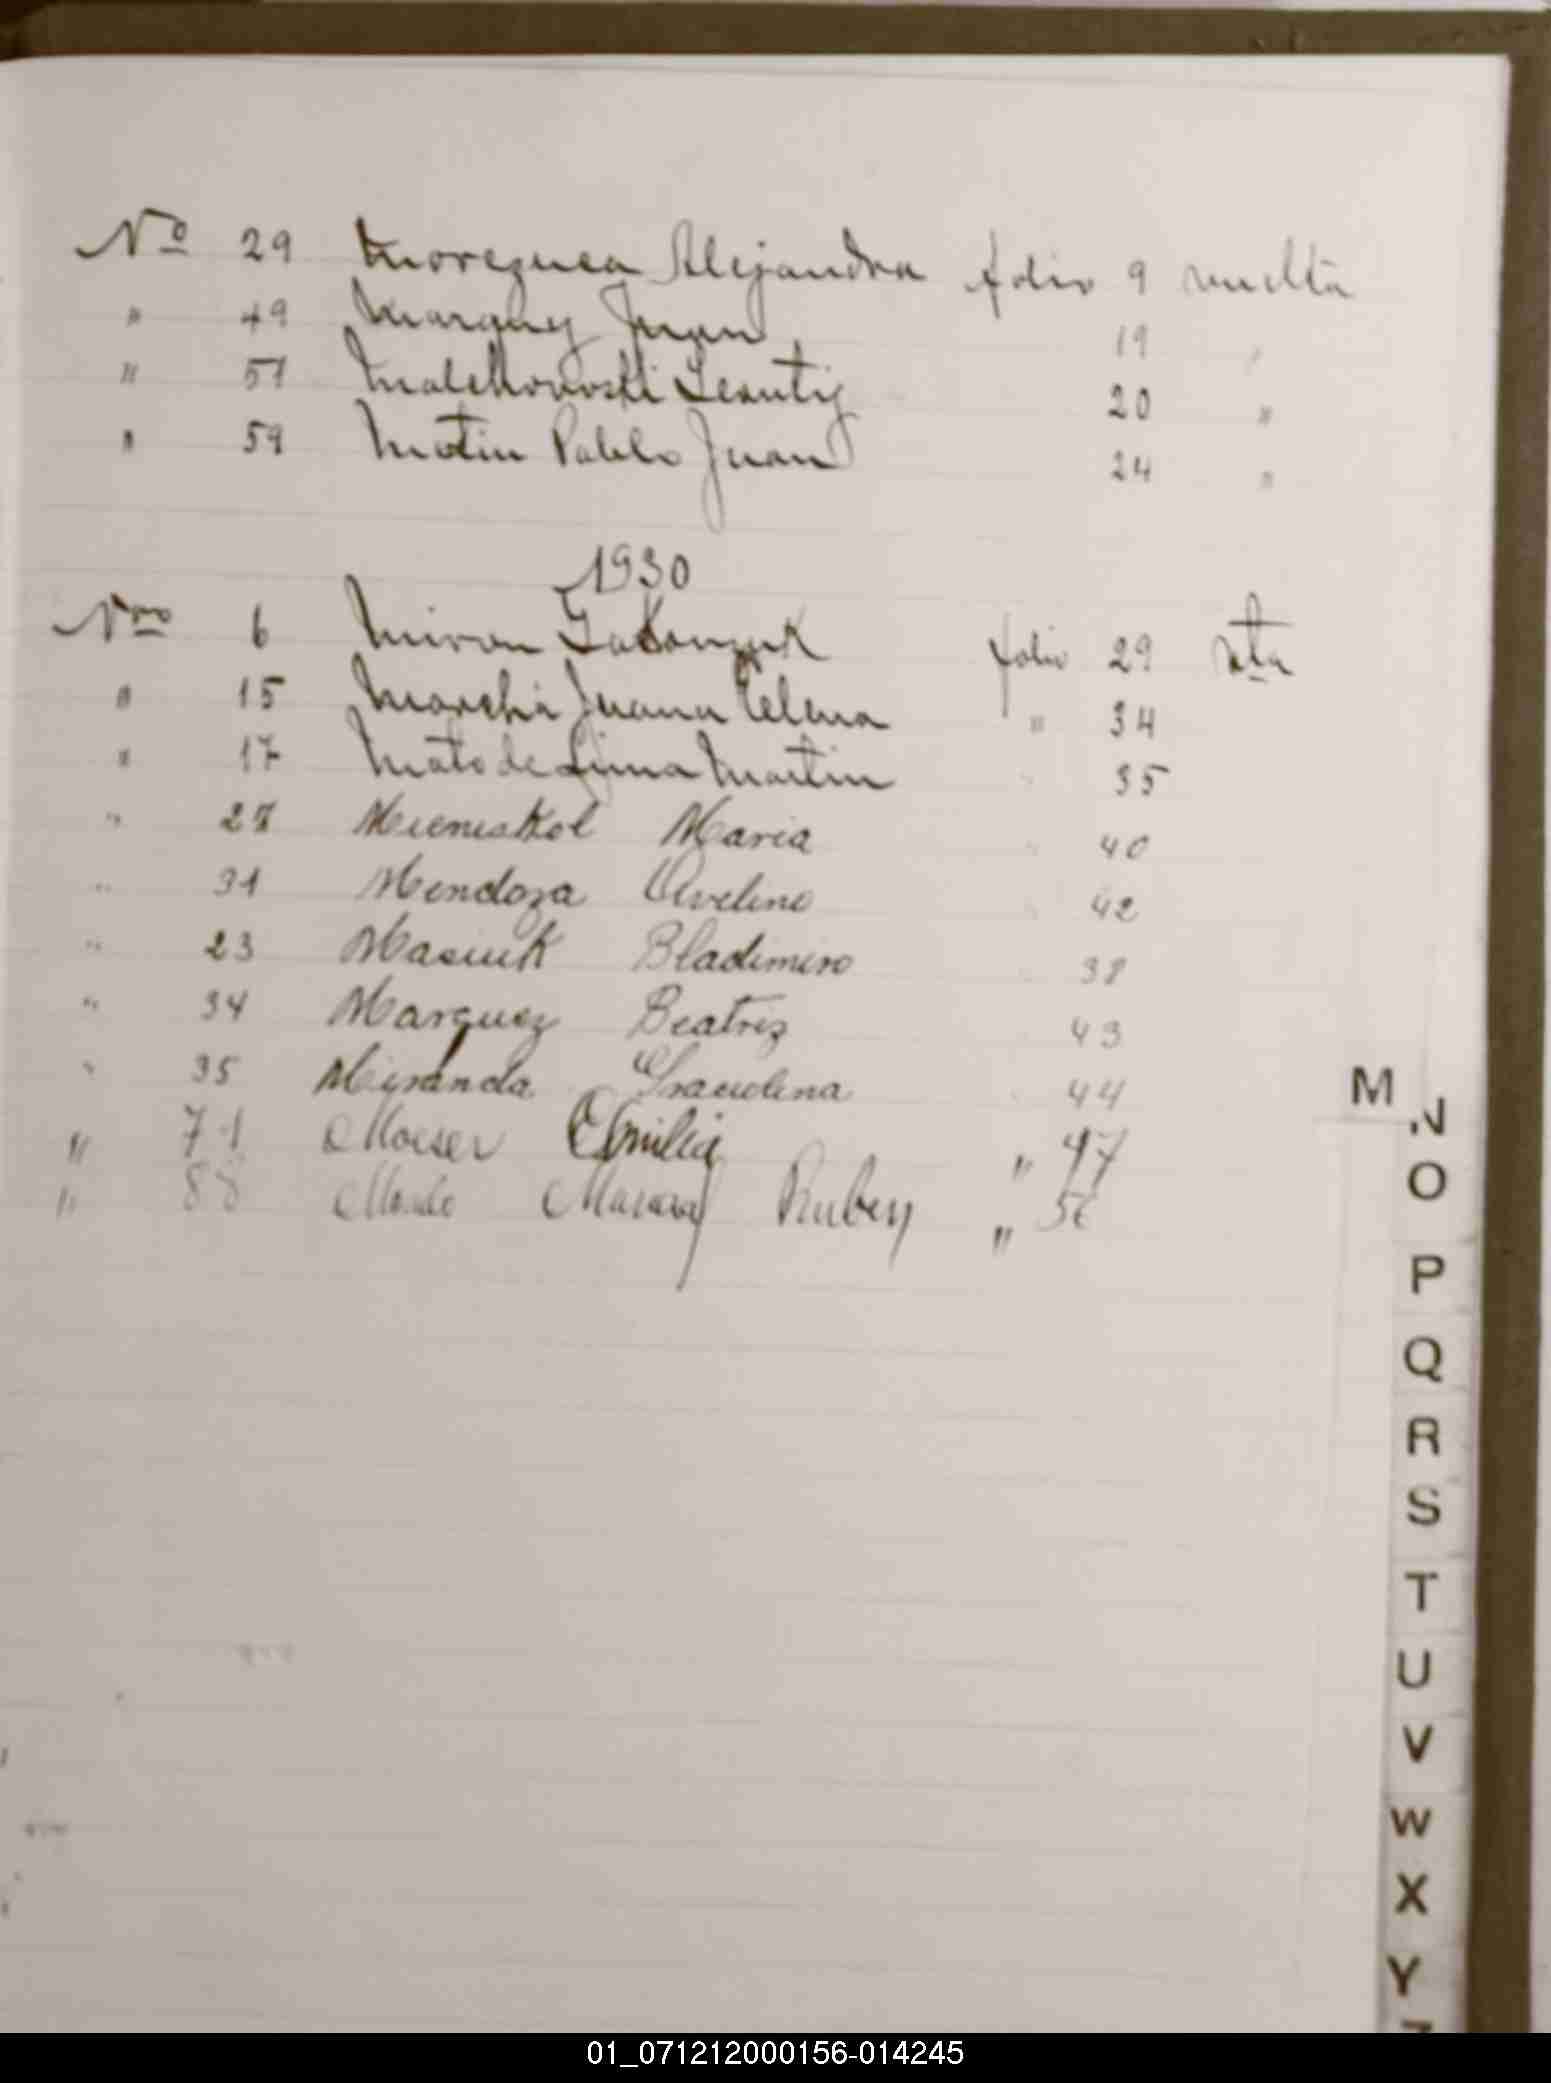 Nº 29 Morezuca Alejandra folio 9 vuelta
" 49 Marquy Juan 19 "
" 51 Malchowoski Leontij 20 "
" 59 Motin Pablo Juan 24 "
1930
Nro 6 Miron folio 29 vta
" 15 Marchi Juana Elena " 34
" 17 Mato de Lima Martin " 35
" 27 Mieniskol Maria " 40
" 31 Mendoza Avelino " 42
" 23 Masiuk Bladimiro " 38
" 34 Marquez Beatriz " 43
" 35 Miranda Graciolina " 44
" 71 Moeser Emilia " 47
" 88 Ruben " 56
M
N
O
P
Q
R
S
T
U
V
W
X
Y
Z
01_071212000156-014245